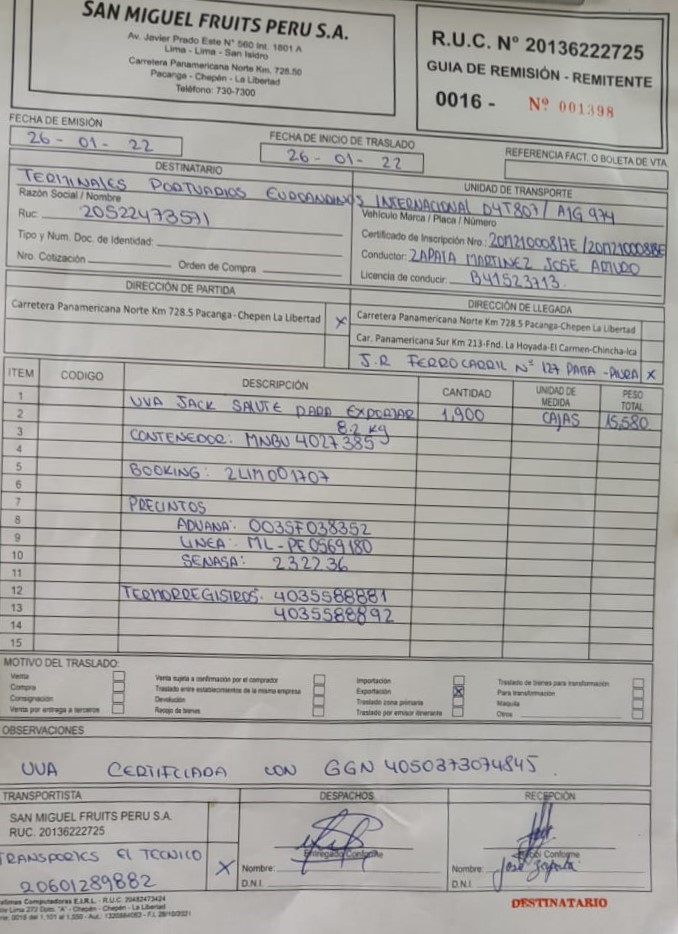 SAN MIGUEL FRUITS PERU S.A.
Av. Javier Prado Este N° 560 Int. 1801 A
Lima - Lima - San Isidro
Carretera Panamericana Norte Km. 728.50
Pacanga - Chepén - La Libertad
Teléfono: 730-7300
R.U.C. N° 20136222725
GUIA DE REMISIÓN - REMITENTE
0016 - Nº 001398
FECHA DE EMISIÓN
26 - 01 - 22
FECHA DE INICIO DE TRASLADO
26 - 01 - 22
REFERENCIA FACT. O BOLETA DE VTA.
DESTINATARIO
TERMINALES PORTUARIOS EUROANDINOS INTERNACIONAL
Razón Social / Nombre
Ruc: 20522473571
Tipo y Num. Doc. de Identidad:
Nro. Cotización Orden de Compra
UNIDAD DE TRANSPORTE
D4T807 / A1G 974
Vehículo Marca / Placa / Número
Certificado de Inscripción Nro.:
Conductor: ZAPATA MARTINEZ JOSE ARTURO
Licencia de conducir: B41523713
DIRECCIÓN DE PARTIDA
Carretera Panamericana Norte Km 728.5 Pacanga-Chepen La Libertad X
DIRECCIÓN DE LLEGADA
Carretera Panamericana Norte Km 728.5 Pacanga-Chepen La Libertad
Car. Panamericana Sur Km 213-Fnd. La Hoyada-El Carmen-Chincha-Ica
J.R FERROCARRIL N° 127 PAITA - PIURA X
ITEM CODIGO DESCRIPCIÓN CANTIDAD UNIDAD DE MEDIDA PESO TOTAL
1 UVA JACK SALUTE PARA EXPORTAR 1,900 CAJAS 15,580
2 8.2 kg
3 CONTENEDOR: MNBU 4027385
4
5 BOOKING: 2LIM001707
6
7 PRECINTOS
8 ADUANA: 0035F038352
9 LINEA: ML-PE0569180
10 SENASA: 232236
11
12 TERMORREGISTROS: 4035588881
13 4035588892
14
15
MOTIVO DEL TRASLADO:
Venta
Compra
Consignación
Venta por entrega a terceros
Venta sujeta a confirmación por el comprador
Traslado entre establecimientos de la misma empresa
Devolución
Recojo de bienes
Importación
Exportación X
Traslado zona primaria
Traslado por emisor itinerante
Traslado de bienes para transformación
Para transformación
Maquila
Otros
OBSERVACIONES
UVA CERTIFCIADA CON GGN 4050373074845
TRANSPORTISTA
SAN MIGUEL FRUITS PERU S.A.
RUC. 20136222725
TRANSPORTES El TECNICO X
20601289882
DESPACHOS
Entregado Conforme
Nombre:
D.N.I.
RECEPCIÓN
Recibi Conforme
Nombre: Jose Zapata
D.N.I.
DESTINATARIO
Computadores E.I.R.L. - R.U.C. 20482473424
Lima 272 Dpto. "A" - Chepén - Chepén - La Libertad